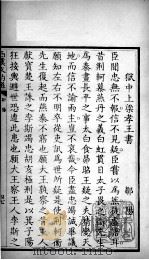 獄中上梁孝王書　鄒陽
臣聞忠無不報信不見疑臣嘗以為然徒虛語耳
昔荊軻慕燕丹之義白虹貫日太子畏之衛先生
為秦畫長平之事太白食昴昭王疑之夫精變天
地而信不諭兩主豈不哀哉今臣盡忠竭誠畢議
願知左右不明卒從吏訊為世所疑是使荊軻衛
先生復起而燕秦不寤也願大王熟察之昔玉人
獻寶楚王誅之李斯竭忠胡亥極刑是以箕子陽
狂接輿避世恐遭此患也願大王察玉人李斯之